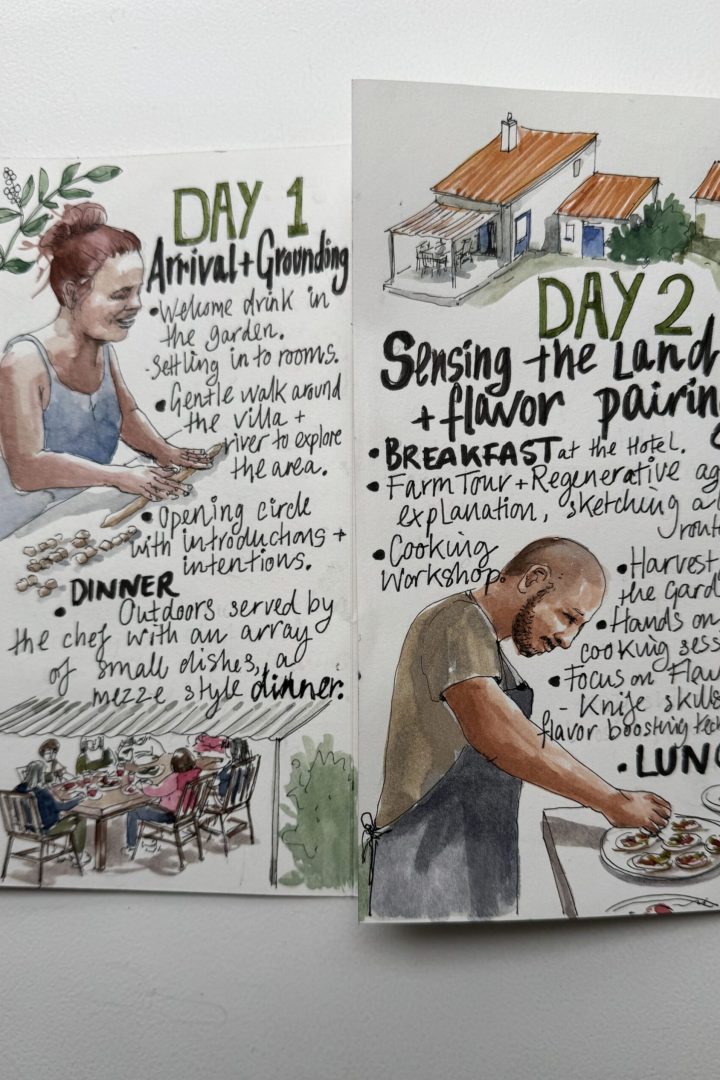 DAY 1
Arrival + Grounding
• Welcome drink in
the garden.
- Settling in to rooms.
• Gentle walk around
the villa +
river to explore
the area.
• Opening circle
with introductions +
intentions.
• DINNER
Outdoors served by
the chef with an array
of small dishes, a
mezze style dinner.
DAY 2
Sensing the Land
+ flavor pairing
• BREAKFAST at the Hotel.
• Farm Tour + Regenerative ag
explanation, sketching a
• Cooking
Workshop.
• Harvest
the Gard
• Hands on
cooking sess
• Focus on Flav
- Knife skills
flavor boosting
• LUNC